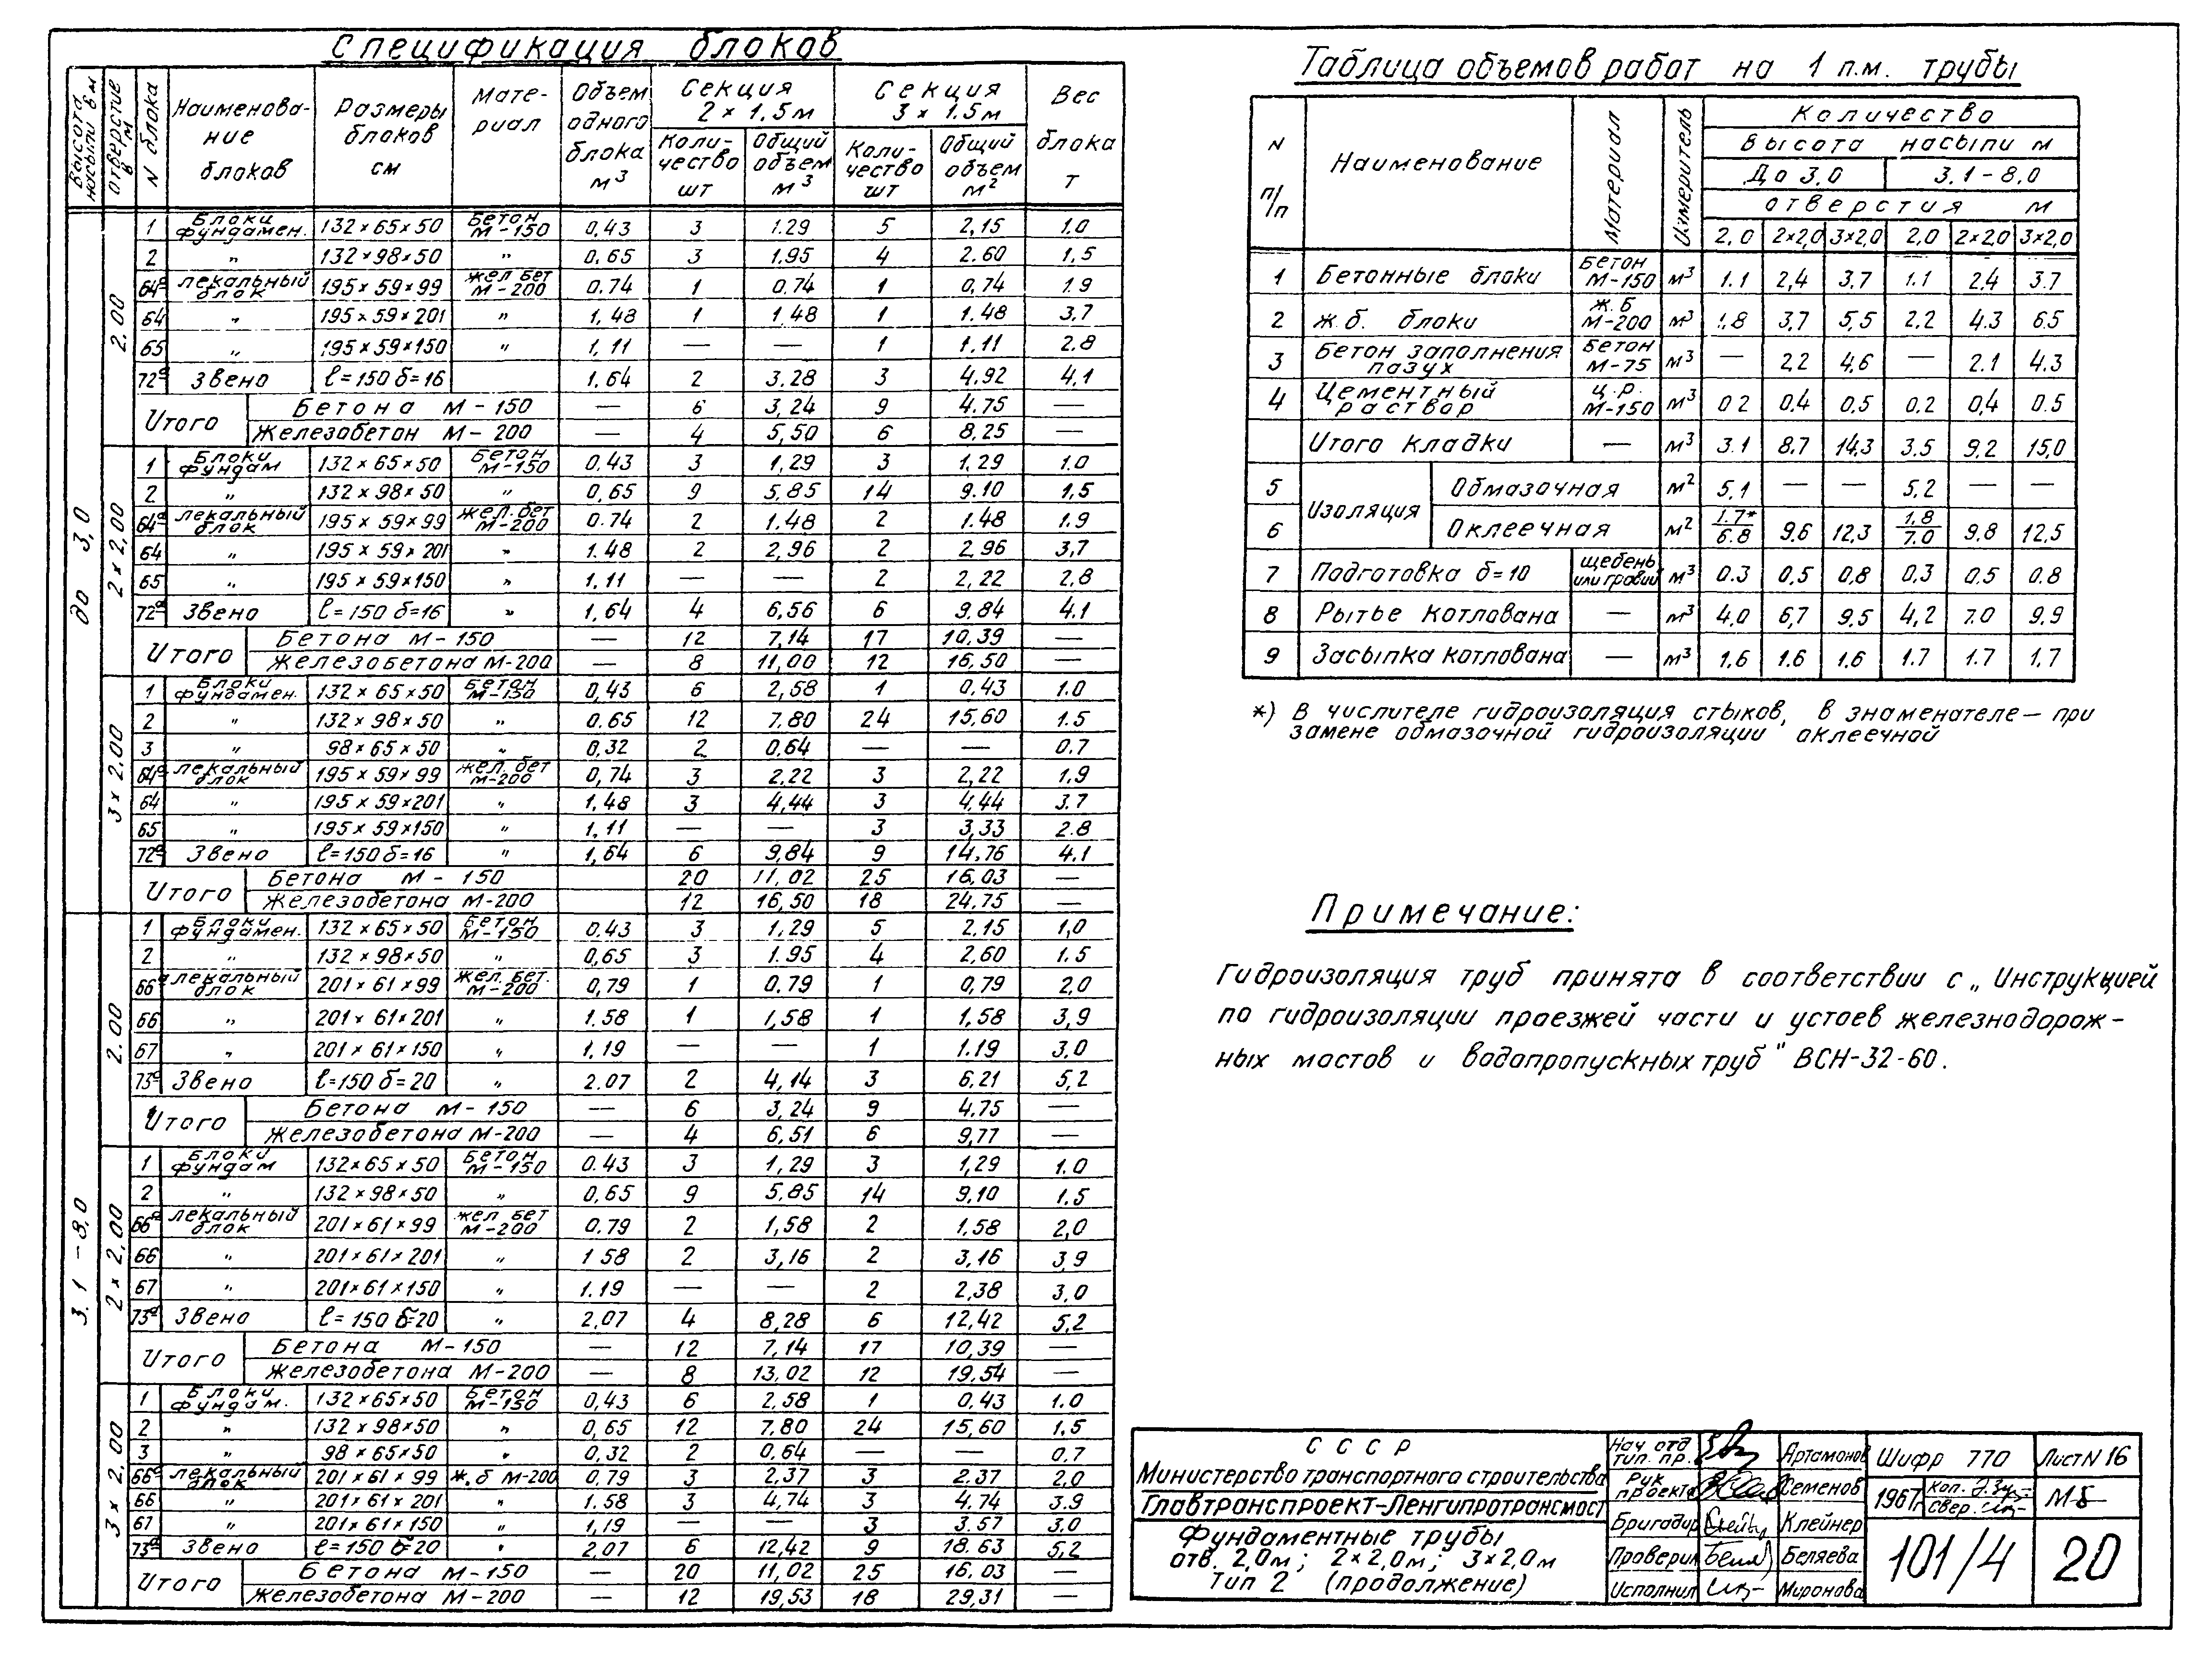 Спецификация блоков
Высота насыпи в м | Отверстие в м | N блока | Наименование блоков | Размеры блоков см | Материал | Объем одного блока м3 | Секция 2×1,5м | Секция 3×1.5м | Вес блока т
Количество шт | Общий объем м3 | Количество шт | Общий объем м2
до 3,0
2,00
1 Блоки фундамен. 132×65×50 Бетон М-150 0,43 3 1.29 5 2,15 1.0
2 „ 132×98×50 „ 0,65 3 1.95 4 2.60 1,5
64а лекальный блок 195×59×99 жел бет М-200 0.74 1 0,74 1 0,74 1.9
64 „ 195×59×201 „ 1,48 1 1.48 1 1.48 3,7
65 „ 195×59×150 „ 1,11 — — 1 1.11 2.8
72а Звено ℓ=150 δ=16 1,64 2 3.28 3 4.92 4,1
Итого Бетона М-150 — 6 3,24 9 4.75 —
Железобетон М-200 — 4 5,50 6 8,25 —
2×2,00
1 Блоки фундам 132×65×50 Бетон М-150 0.43 3 1,29 3 1,29 1.0
2 „ 132×98×50 „ 0,65 9 5,85 14 9.10 1,5
64а лекальный блок 195×59×99 жел.бет М-200 0.74 2 1.48 2 1.48 1.9
64 „ 195×59×201 „ 1.48 2 2,96 2 2,96 3,7
65 „ 195×59×150 „ 1,11 — — 2 2,22 2,8
72а Звено ℓ=150 δ=16 „ 1,64 4 6,56 6 9.84 4.1
Итого Бетона М-150 — 12 7,14 17 10,39 —
Железобетона М-200 — 8 11,00 12 16,50 —
3×2.00
1 Блоки фундамен. 132×65×50 Бетон М-150 0,43 6 2,58 1 0,43 1.0
2 „ 132×98×50 „ 0.65 12 7.80 24 15,60 1.5
3 „ 98×65×50 „ 0,32 2 0,64 — — 0.7
64а лекальный блок 195×59×99 жел.бет М-200 0,74 3 2,22 3 2,22 1.9
64 „ 195×59×201 „ 1.48 3 4,44 3 4.44 3.7
65 „ 195×59×150 „ 1,11 — — 3 3,33 2.8
72а Звено ℓ=150 δ=16 „ 1,64 6 9,84 9 14.76 4.1
Итого Бетона М-150 20 11,02 25 16,03 —
Железобетона М-200 12 16,50 18 24.75 —
3.1-8,0
2.00
1 Блоки фундамен. 132×65×50 Бетон М-150 0.43 3 1,29 5 2.15 1,0
2 „ 132×98×50 „ 0,65 3 1.95 4 2,60 1.5
66а лекальный блок 201×61×99 жел.бет. М-200 0,79 1 0.79 1 0,79 2,0
66 „ 201×61×201 „ 1.58 1 1,58 1 1,58 3,9
67 „ 201×61×150 „ 1,19 — — 1 1.19 3.0
73а Звено ℓ=150 δ=20 „ 2.07 2 4,14 3 6,21 5,2
Итого Бетона М-150 — 6 3,24 9 4.75 —
Железобетона М-200 — 4 6,51 6 9,77 —
2×2,00
1 Блоки фундам 132×65×50 Бетон М-150 0.43 3 1,29 3 1,29 1.0
2 „ 132×98×50 „ 0,65 9 5,85 14 9,10 1.5
66а лекальный блок 201×61×99 жел бет М-200 0.79 2 1,58 2 1,58 2,0
66 „ 201×61×201 „ 1 58 2 3,16 2 3,16 3,9
67 „ 201×61×150 „ 1.19 — — 2 2,38 3,0
73а Звено ℓ=150 δ=20 „ 2,07 4 8,28 6 12,42 5,2
Итого Бетона М-150 — 12 7,14 17 10,39 —
Железобетона М-200 — 8 13,02 12 19.54 —
3×2,00
1 Блоки фундам. 132×65×50 Бетон М-150 0,43 6 2.58 1 0,43 1.0
2 „ 132×98×50 „ 0,65 12 7.80 24 15,60 1,5
3 „ 98×65×50 „ 0,32 2 0,64 — — 0.7
66а лекальный блок 201×61×99 ж.б М-200 0,79 3 2,37 3 2.37 2,0
66 „ 201×61×201 „ 1.58 3 4,74 3 4.74 3.9
67 „ 201×61×150 „ 1,19 — — 3 3.57 3.0
73а Звено ℓ=150 δ=20 „ 2,07 6 12,42 9 18.63 5,2
Итого Бетона М-150 — 20 11,02 25 16.03 —
Железобетона М-200 — 12 19,53 18 29,31 —
Таблица объемов работ на 1 п.м. трубы
N п/п | Наименование | Материал | Измеритель | Количество
Высота насыпи м
До 3,0 | 3.1-8,0
отверстия м
2,0 | 2×2,0 | 3×2,0 | 2,0 | 2×2,0 | 3×2,0
1 Бетонные блоки Бетон М-150 м3 1.1 2,4 3,7 1.1 2.4 3.7
2 Ж.б. блоки Ж.б М-200 м3 1,8 3,7 5,5 2,2 4.3 6.5
3 Бетон заполнения пазух Бетон М-75 м3 — 2.2 4,6 — 2.1 4.3
4 Цементный раствор ц.р. М-150 м3 0 2 0.4 0,5 0.2 0,4 0.5
Итого кладки — м3 3.1 8.7 14,3 3.5 9,2 15,0
5 Изоляция Обмазочная м2 5,1 — — 5,2 — —
6 Оклеечная м2 1.7*/6.8 9,6 12,3 1,8/7.0 9,8 12,5
7 Подготовка δ=10 щебень или гравий м3 0.3 0,5 0,8 0,3 0.5 0.8
8 Рытье котлована — м3 4,0 6,7 9,5 4,2 7.0 9.9
9 Засыпка котлована — м3 1,6 1.6 1,6 1.7 1.7 1,7
*) В числителе гидроизоляция стыков, в знаменателе — при
замене обмазочной гидроизоляции оклеечной
Примечание:
Гидроизоляция труб принята в соответствии с „Инструкцией
по гидроизоляции проезжей части и устоев железнодорож-
ных мостов и водопропускных труб" ВСН-32-60.
СССР
Министерство транспортного строительства
Главтранспроект-Ленгипротрансмост
Фундаментные трубы
отв. 2,0м; 2×2,0м; 3×2,0м
Тип 2 (продолжение)
Нач. отд тип. пр. Артамонов
Рук проекта Семенов
Бригадир Клейнер
Проверил Беляева
Исполнил Миронова
Шифр 770 Лист N 16
1967г Коп. Свер. М-б-
101/4 20